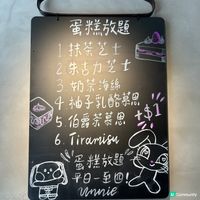 蛋糕放題
1. 抹茶芝士
2. 朱古力芝士
3. 奶茶海綿
4. 柚子乳酪慕思
5. 伯爵茶慕思
+$1
6. Tiramisu
蛋糕放題
平日一至四!
unnie